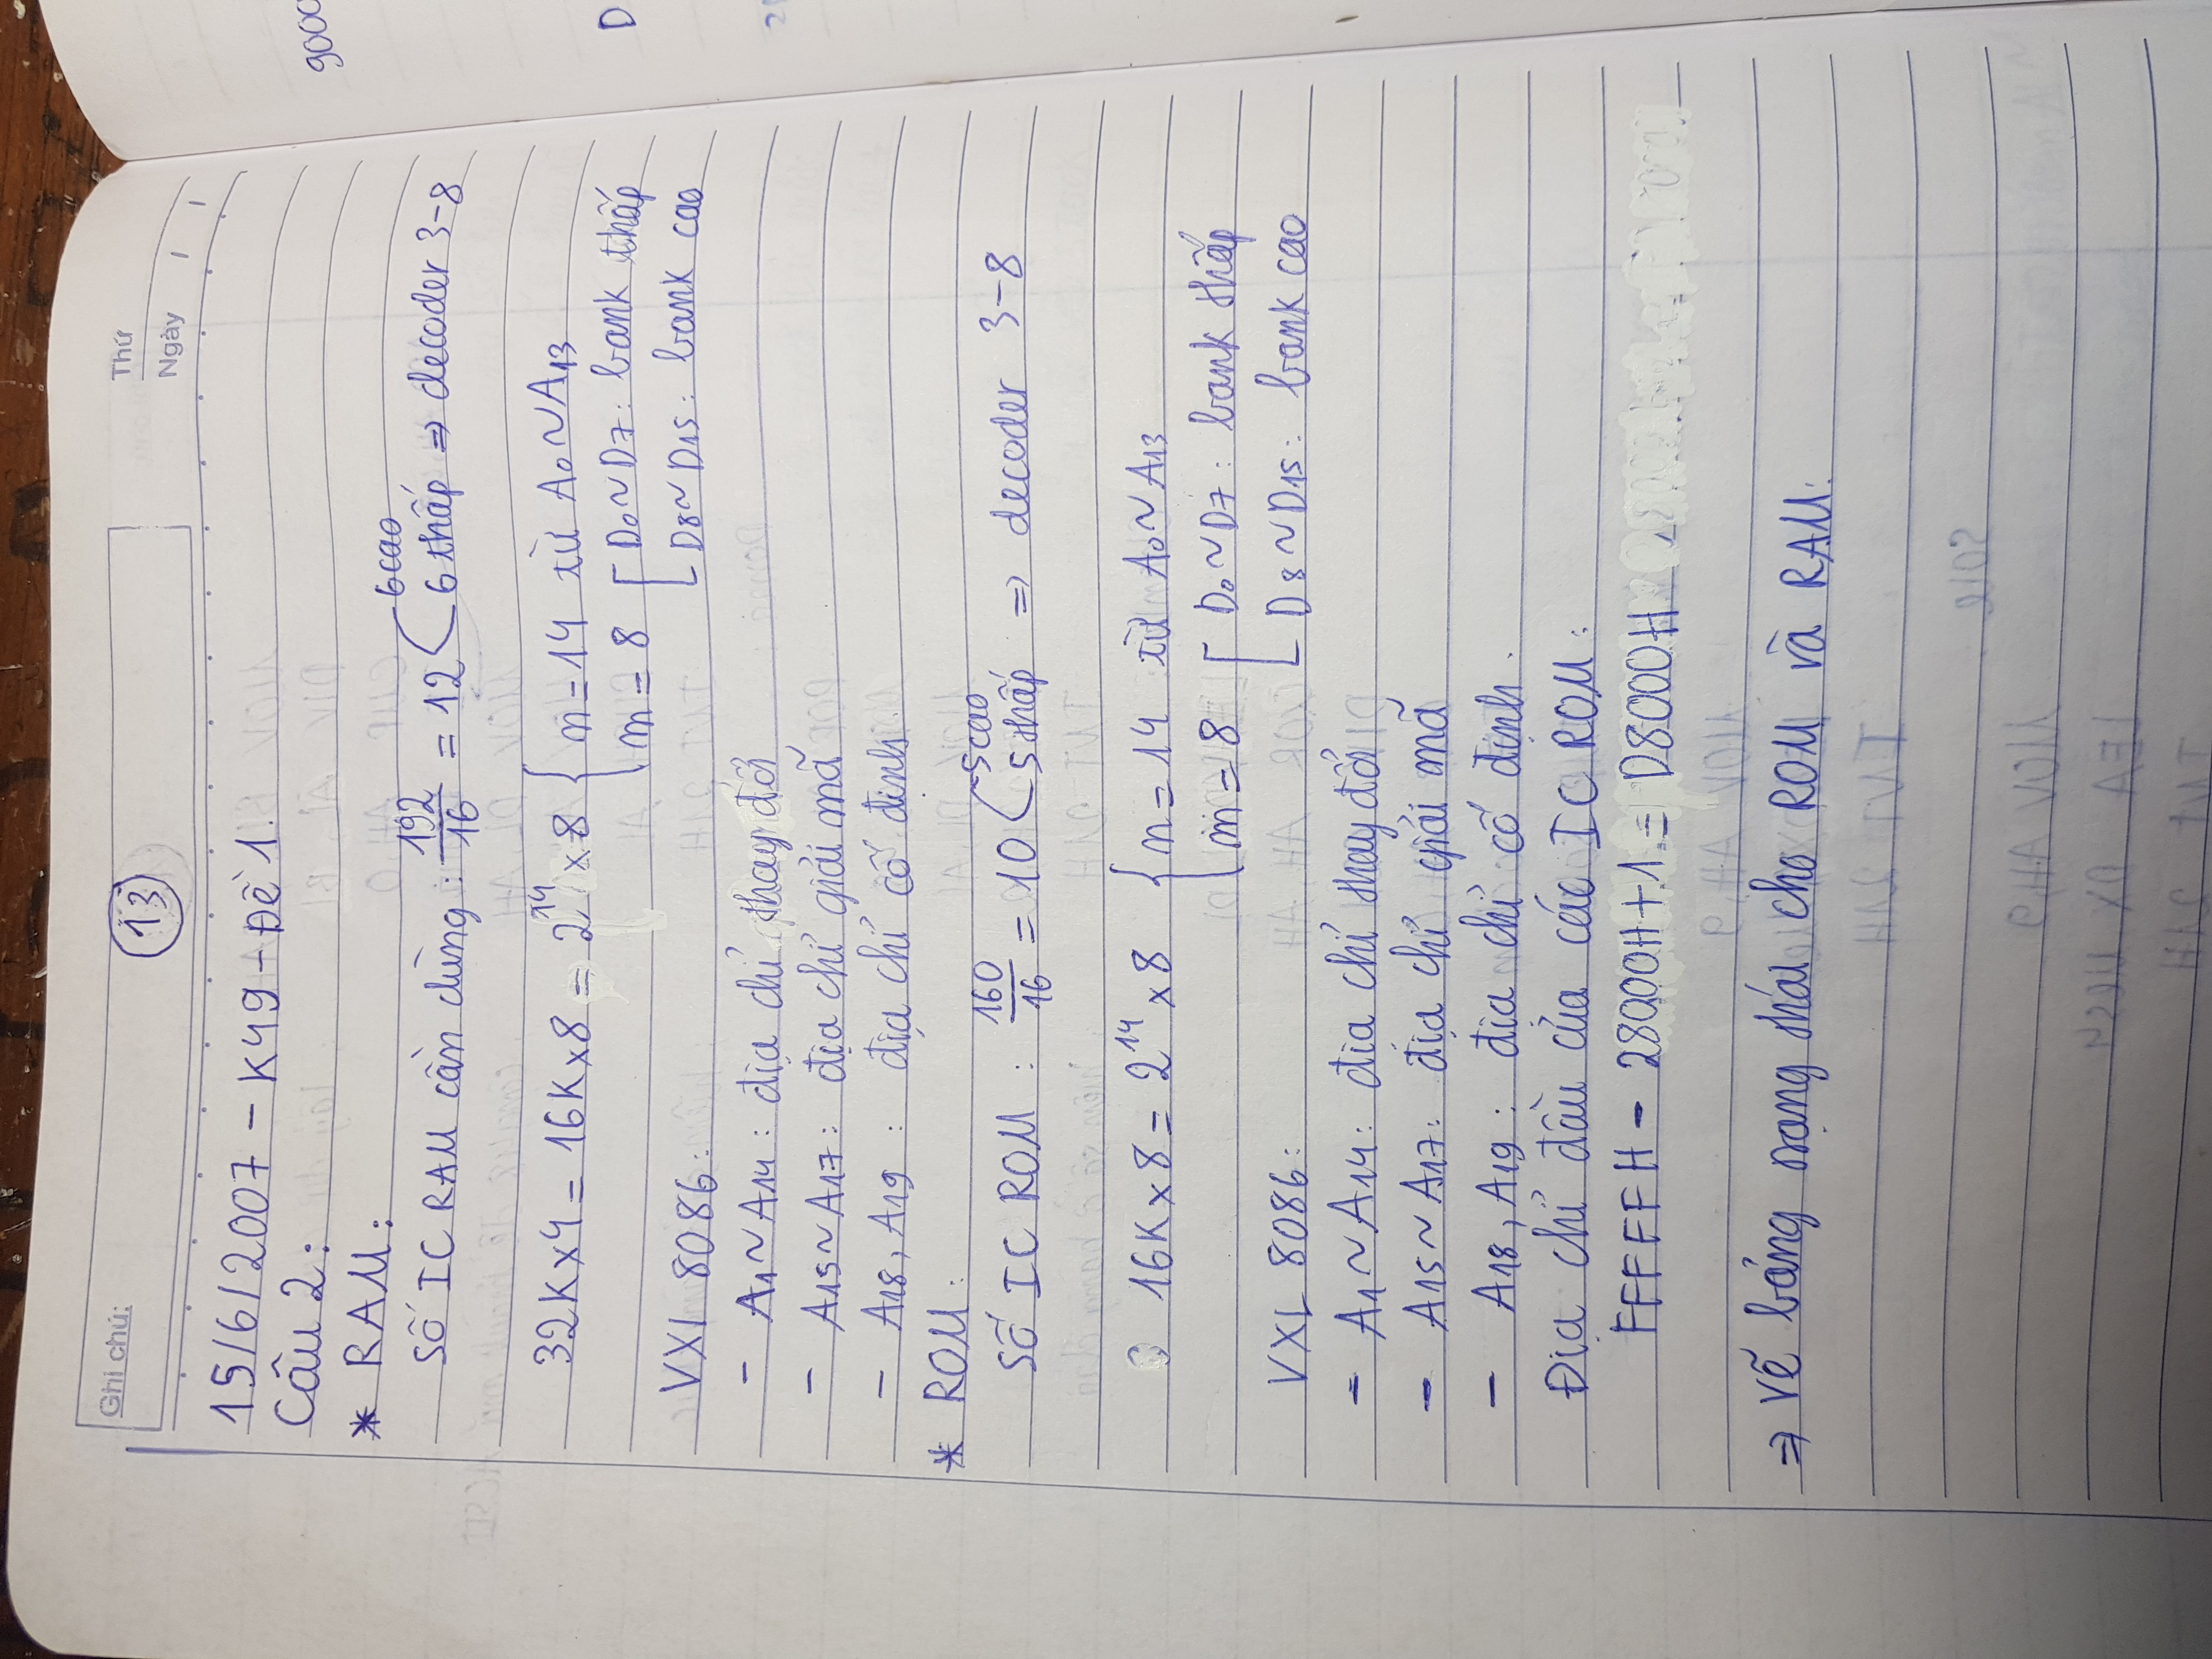 Ghi chú:
13
Thứ
Ngày / /
15/6/2007 – K49 – Đề 1.
Câu 2:
* RAM:
6 cao
Số IC RAM cần dùng : 192/16 = 12 6 thấp ⇒ decoder 3-8
32K×4 = 16K×8 = 2^14 × 8 { n = 14 từ A0 ~ A13
m = 8 [ D0 ~ D7 : bank thấp
D8 ~ D15 : bank cao
VXL 8086 :
– A1 ~ A14 : địa chỉ thay đổi
– A15 ~ A17 : địa chỉ giải mã
– A18, A19 : địa chỉ cố định.
* ROM :
5 cao
Số IC ROM : 160/16 = 10 5 thấp ⇒ decoder 3-8
16K×8 = 2^14 × 8 { n = 14 từ A0 ~ A13
m = 8 [ D0 ~ D7 : bank thấp
D8 ~ D15 : bank cao
VXL 8086 :
– A1 ~ A14 : địa chỉ thay đổi
– A15 ~ A17 : địa chỉ giải mã
– A18, A19 : địa chỉ cố định.
Địa chỉ đầu của các IC ROM :
FFFFFH – 28000H + 1 = D8000H
⇒ Vẽ bảng trạng thái cho ROM và RAM.
9000
D